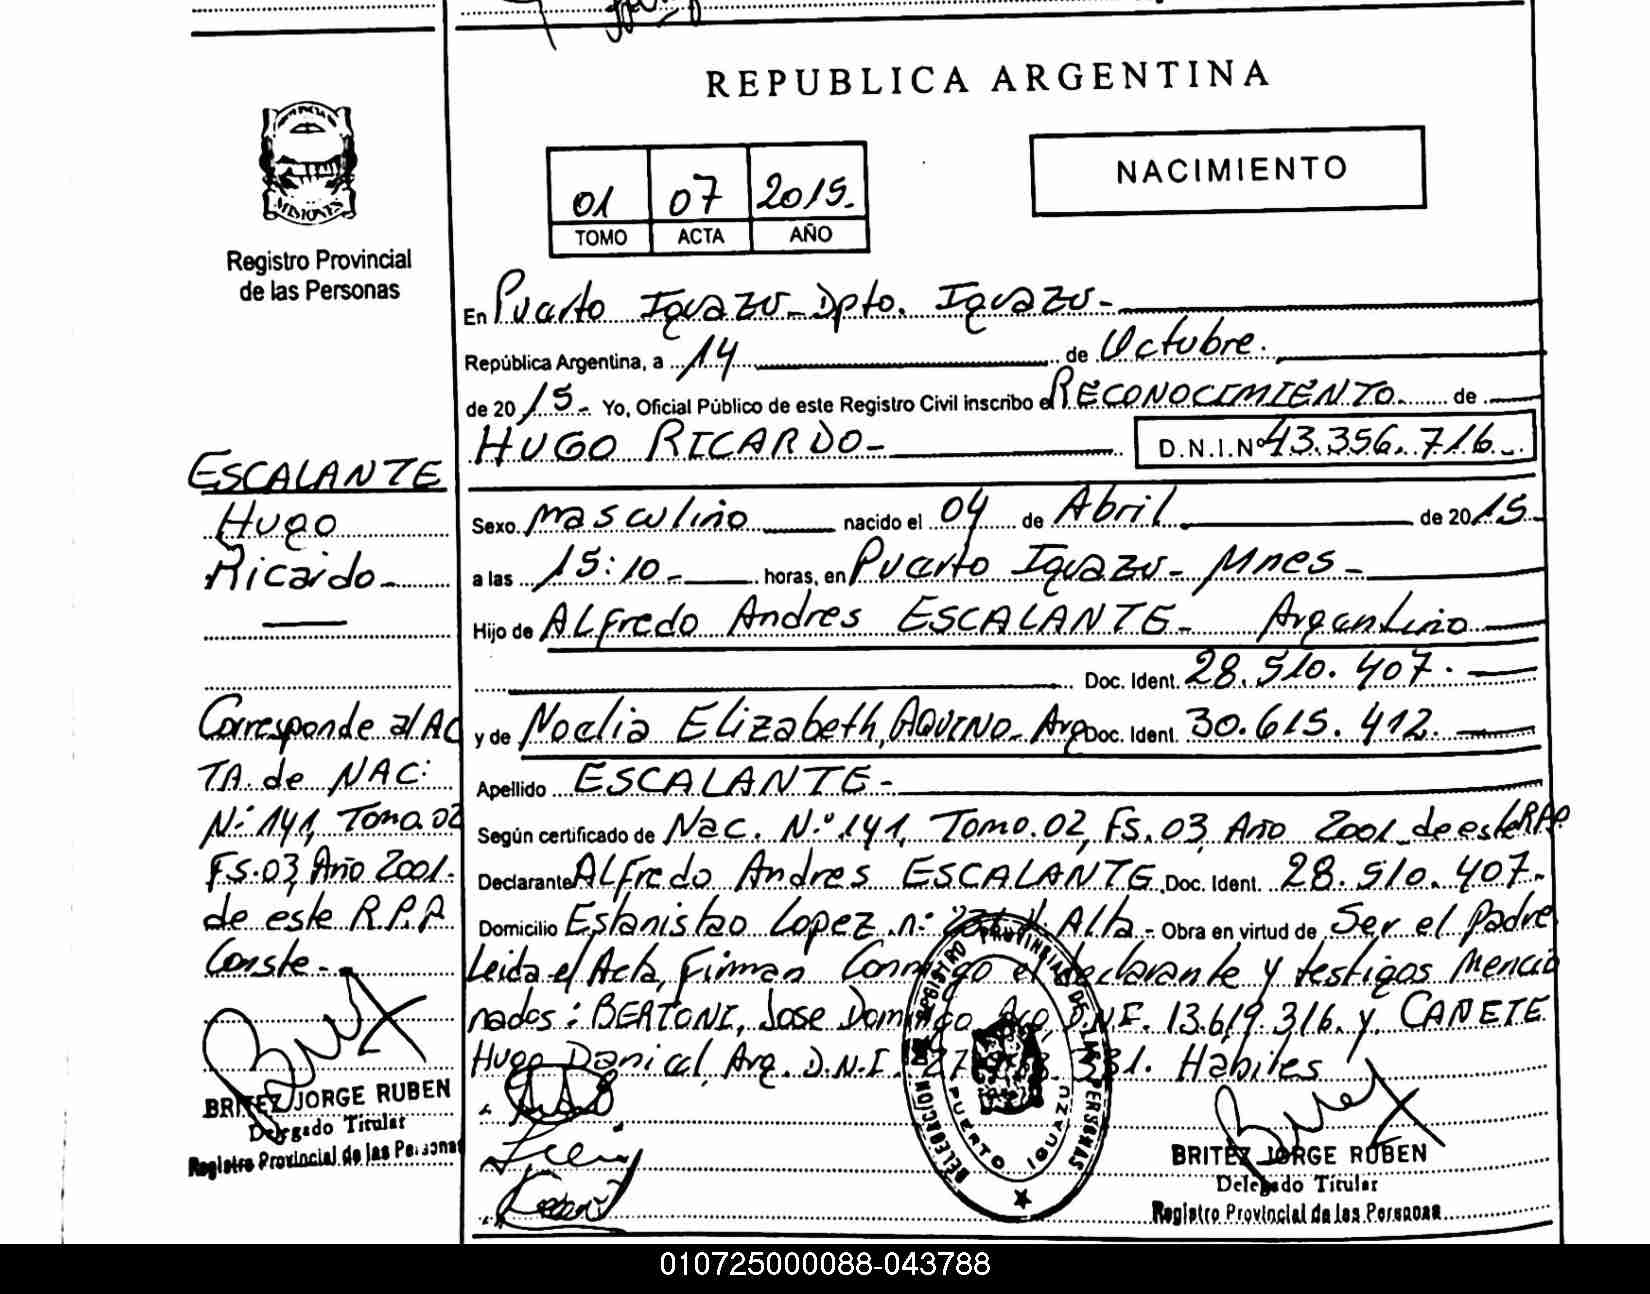 REPUBLICA ARGENTINA
MISIONES
Registro Provincial
de las Personas
01 07 2015.
TOMO ACTA AÑO
NACIMIENTO
En Puerto Iguazu - Dpto. Iguazu -
República Argentina, a 14 de Octubre.
de 20 15 - Yo, Oficial Público de este Registro Civil inscribo el RECONOCIMIENTO de
HUGO RICARDO - D.N.I.Nº 43.356.716.
Sexo masculino nacido el 04 de Abril de 2015
a las 15:10 - horas, en Puerto Iguazu - Mnes -
Hijo de ALfredo Andres ESCALANTE - Argentino
Doc. Ident. 28.510.407.
y de Noelia Elizabeth, AQUINO - Arg Doc. Ident. 30.615.412.
Apellido ESCALANTE -
Según certificado de Nac. N.º 141, Tomo.02, Fs.03, Año 2001 de este R.P.P.
Declarante ALfredo Andres ESCALANTE. Doc. Ident. 28.510.407.
Domicilio Estanislao Lopez n: Alta - Obra en virtud de Ser el Padre
Leida el Acta, Firman Conmigo el declarante y testigos Mencio
nados: BERTONI, Jose Domingo Arg D.N.I. 13.619.316. y CAÑETE
Hugo Daniel, Arg. D.N.I. Habiles
ESCALANTE
Hugo
Ricardo -
Corresponde al AC
TA. de NAC:
N: 141, Tomo.02
FS.03, Año 2001.
de este R.P.P.
Conste -
BRITEZ JORGE RUBEN
Delegado Titular
Registro Provincial de las Personas
REGISTRO PROVINCIAL DE LAS PERSONAS
DELEGACION
PUERTO IGUAZU
BRITEZ JORGE RUBEN
Delegado Titular
Registro Provincial de las Personas
010725000088-043788